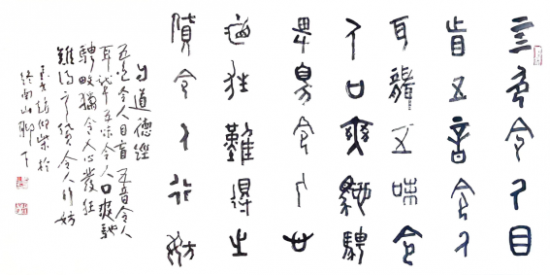 五色令人目
盲五音令人
耳聾五味令
人口爽馳騁
畋獵令人心
發狂難得之
貨令人行妨
道德經
五色令人目盲五音令人
耳聾五味令人口爽馳
騁畋獵令人心發狂
難得之貨令人行妨
於
終南山